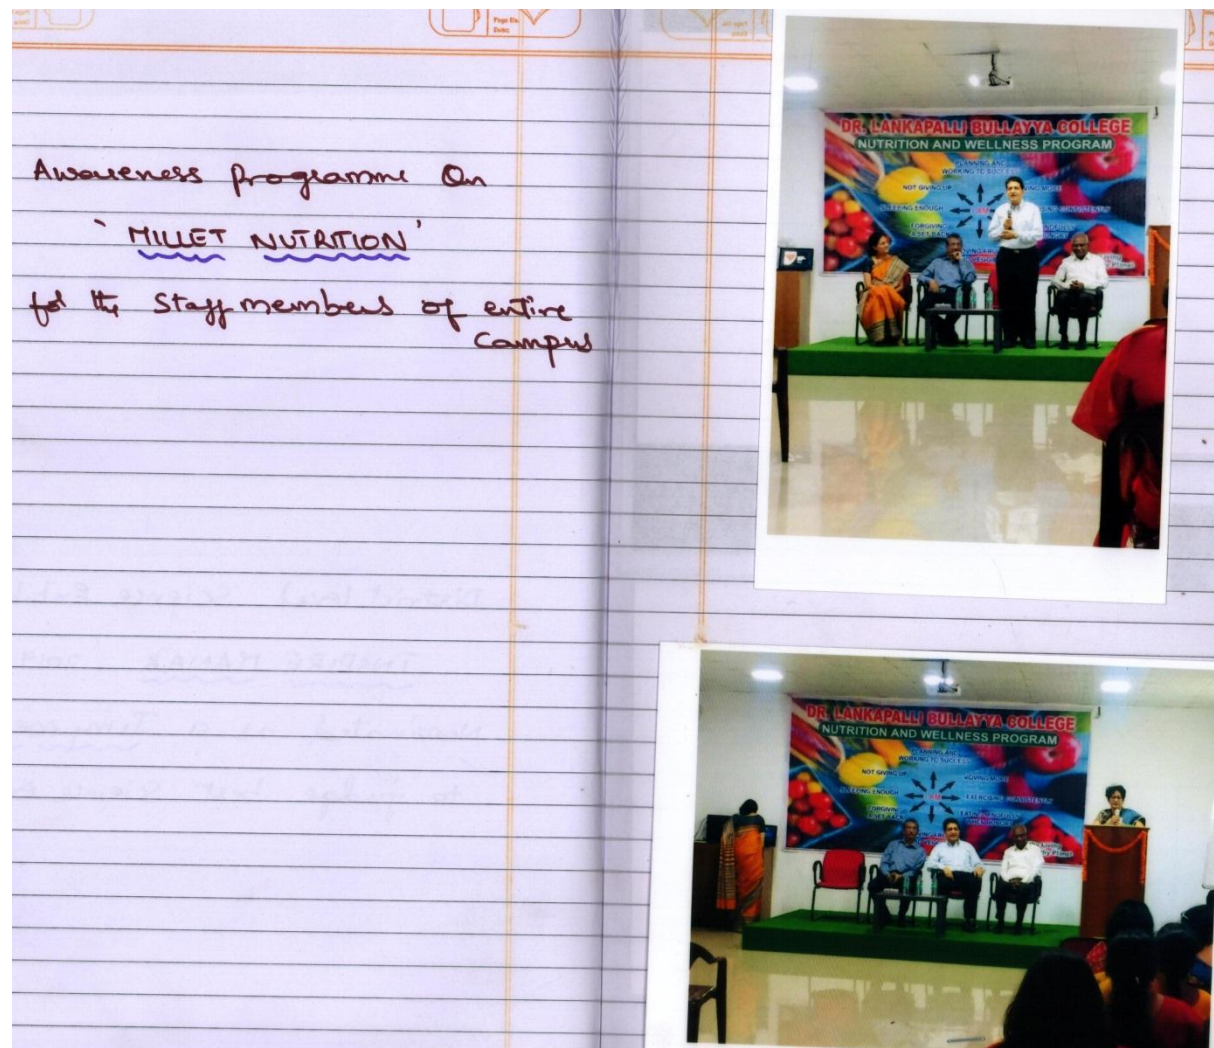 Awareness programme On
' MILLET NUTRITION '
for the Staff members of entire
Campus
DR. LANKAPALLI BULLAYYA COLLEGE
NUTRITION AND WELLNESS PROGRAM
PLANNING AND
WORKING TO SUCCESS
NOT GIVING UP
SLEEPING ENOUGH
FORGIVING
A SET BACK
DR. LANKAPALLI BULLAYYA COLLEGE
NUTRITION AND WELLNESS PROGRAM
PLANNING AND
WORKING TO SUCCESS
NOT GIVING UP
MOVING MORE
SLEEPING ENOUGH
I AM
EXERCISING CONSISTENTLY
FORGIVING
A SET BACK
EATING MINDFULLY
WHEN HUNGRY